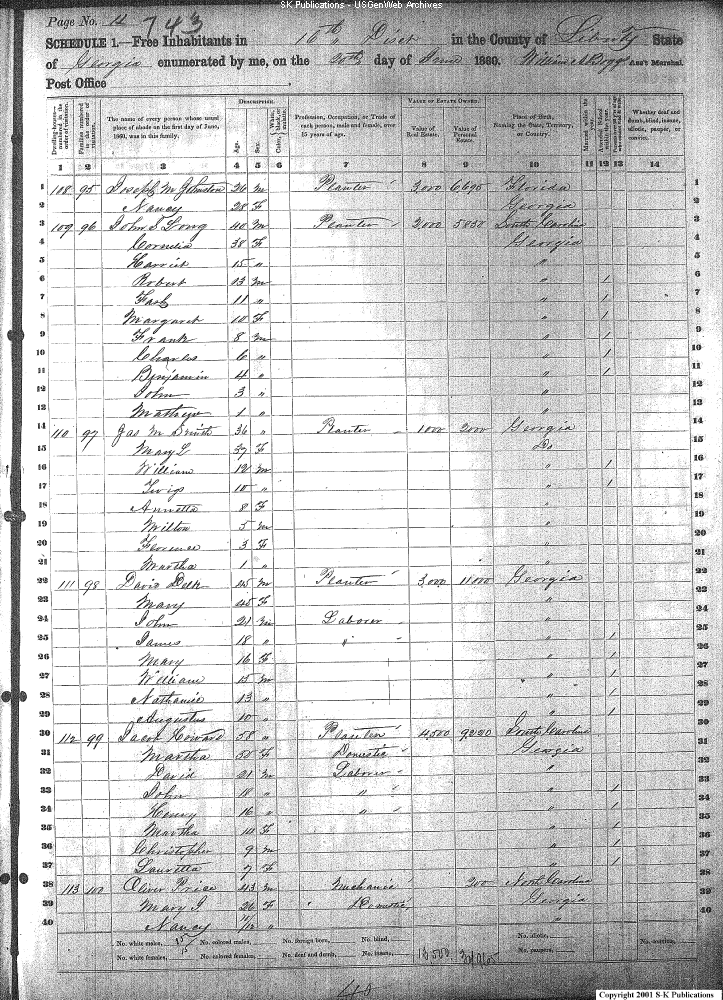 SK Publications - USGenWeb Archives
Page No. 11 743
SCHEDULE 1.—Free Inhabitants in 16th Dist in the County of Liberty State
of Georgia enumerated by me, on the 20th day of June 1860. William Ass't Marshal.
Post Office
Dwelling-houses—numbered in the order of visitation.
Families numbered in the order of visitation.
The name of every person whose usual place of abode on the first day of June, 1860, was in this family.
DESCRIPTION.
Age. Sex. Color, White, black, or mulatto.
Profession, Occupation, or Trade of each person, male and female, over 15 years of age.
VALUE OF ESTATE OWNED.
Value of Real Estate. Value of Personal Estate.
Place of Birth, Naming the State, Territory, or Country.
Married within the year.
Attended School within the year.
Whether deaf and dumb, blind, insane, idiotic, pauper, or convict.
1 2 3 4 5 6 7 8 9 10 11 12 13 14
1 108 95 Joseph M Johnston 26 m Planter 3,000 6695 Florida 1
2 Nancy 28 F Georgia 2
3 109 96 John S Long 40 m Planter 2,000 5830 South Carolina 3
4 Cornelia 38 F Georgia 4
5 Harriet 15 " " 5
6 Robert 13 m " / 6
7 11 " " / 7
8 Margaret 10 F " / 8
9 Frank 8 m " / 9
10 Charles 6 " " / 10
11 Benjamin 4 " " / 11
12 John 3 " "
13 Mathew 1 " "
14 110 97 Jas M Smith 36 " Planter 1000 2000 Georgia 14
15 Mary L 37 F Do 15
16 William 12 m " / 16
17 Twigs 10 " " / 17
18 Annetta 8 F " 18
19 Milton 5 m " 19
20 Florence 3 F " 20
21 Martha 1 " " 21
22 111 98 David Delk 45 m Planter 3,000 11000 Georgia 22
23 Mary 45 F " 23
24 John 21 m Laborer " 24
25 James 18 " " " / 25
26 Mary 16 F " / 26
27 William 15 m " / 27
28 Nathaniel 13 " " / 28
29 Augustus 10 " " / 29
30 112 99 Jacob Howard 58 " Planter 4,500 South Carolina 30
31 Martha 50 F Domestic Georgia 31
32 David 21 m Laborer " 32
33 John 18 " " " / 33
34 Henry 16 " " " / 34
35 Martha 10 F " / 35
36 Christopher 9 m " / 36
37 Lauretta 7 F " / 37
38 113 100 Oliver Price 43 m Mechanic 200 North Carolina 38
39 Mary J 26 F Domestic Georgia 39
40 Nancy /12 " " 40
No. white males, No. colored males, No. foreign born, No. blind, No. idiotic, No. convicts,
No. white females, 15 No. colored females, No. deaf and dumb, No. insane, No. paupers,
40
Copyright 2001 S-K Publications